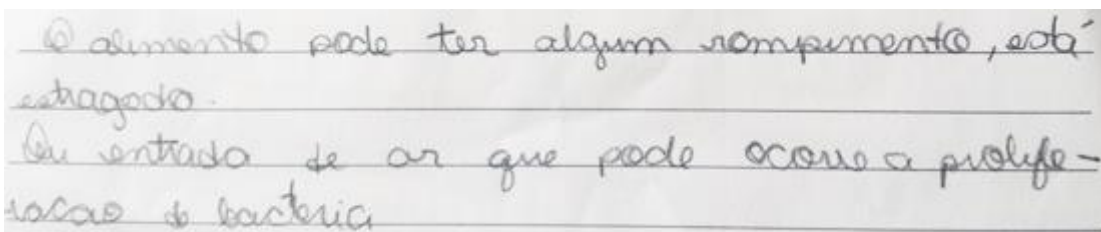 O alimento pode ter algum rompimento, está
estragado.
Ou entrada de ar que pode ocorre a prolife-
racao de bacteria